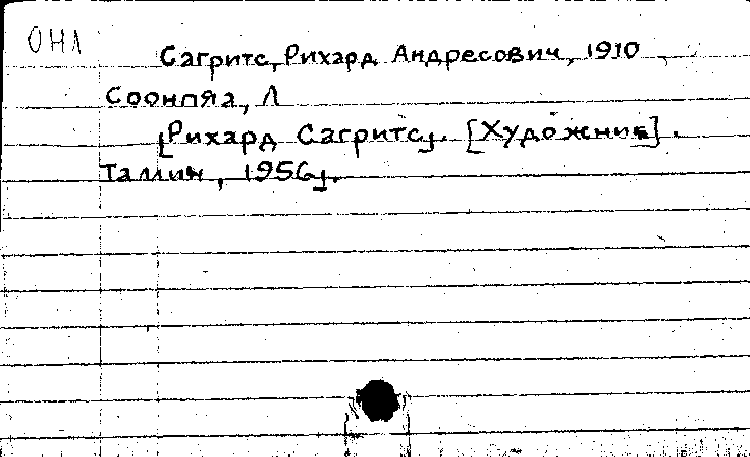 ОНЛ
Сагритс, Рихард Андресович, 1910
Соонпяа, Л
[Рихард Сагритс]. [Художник].
Таллин, 1956].